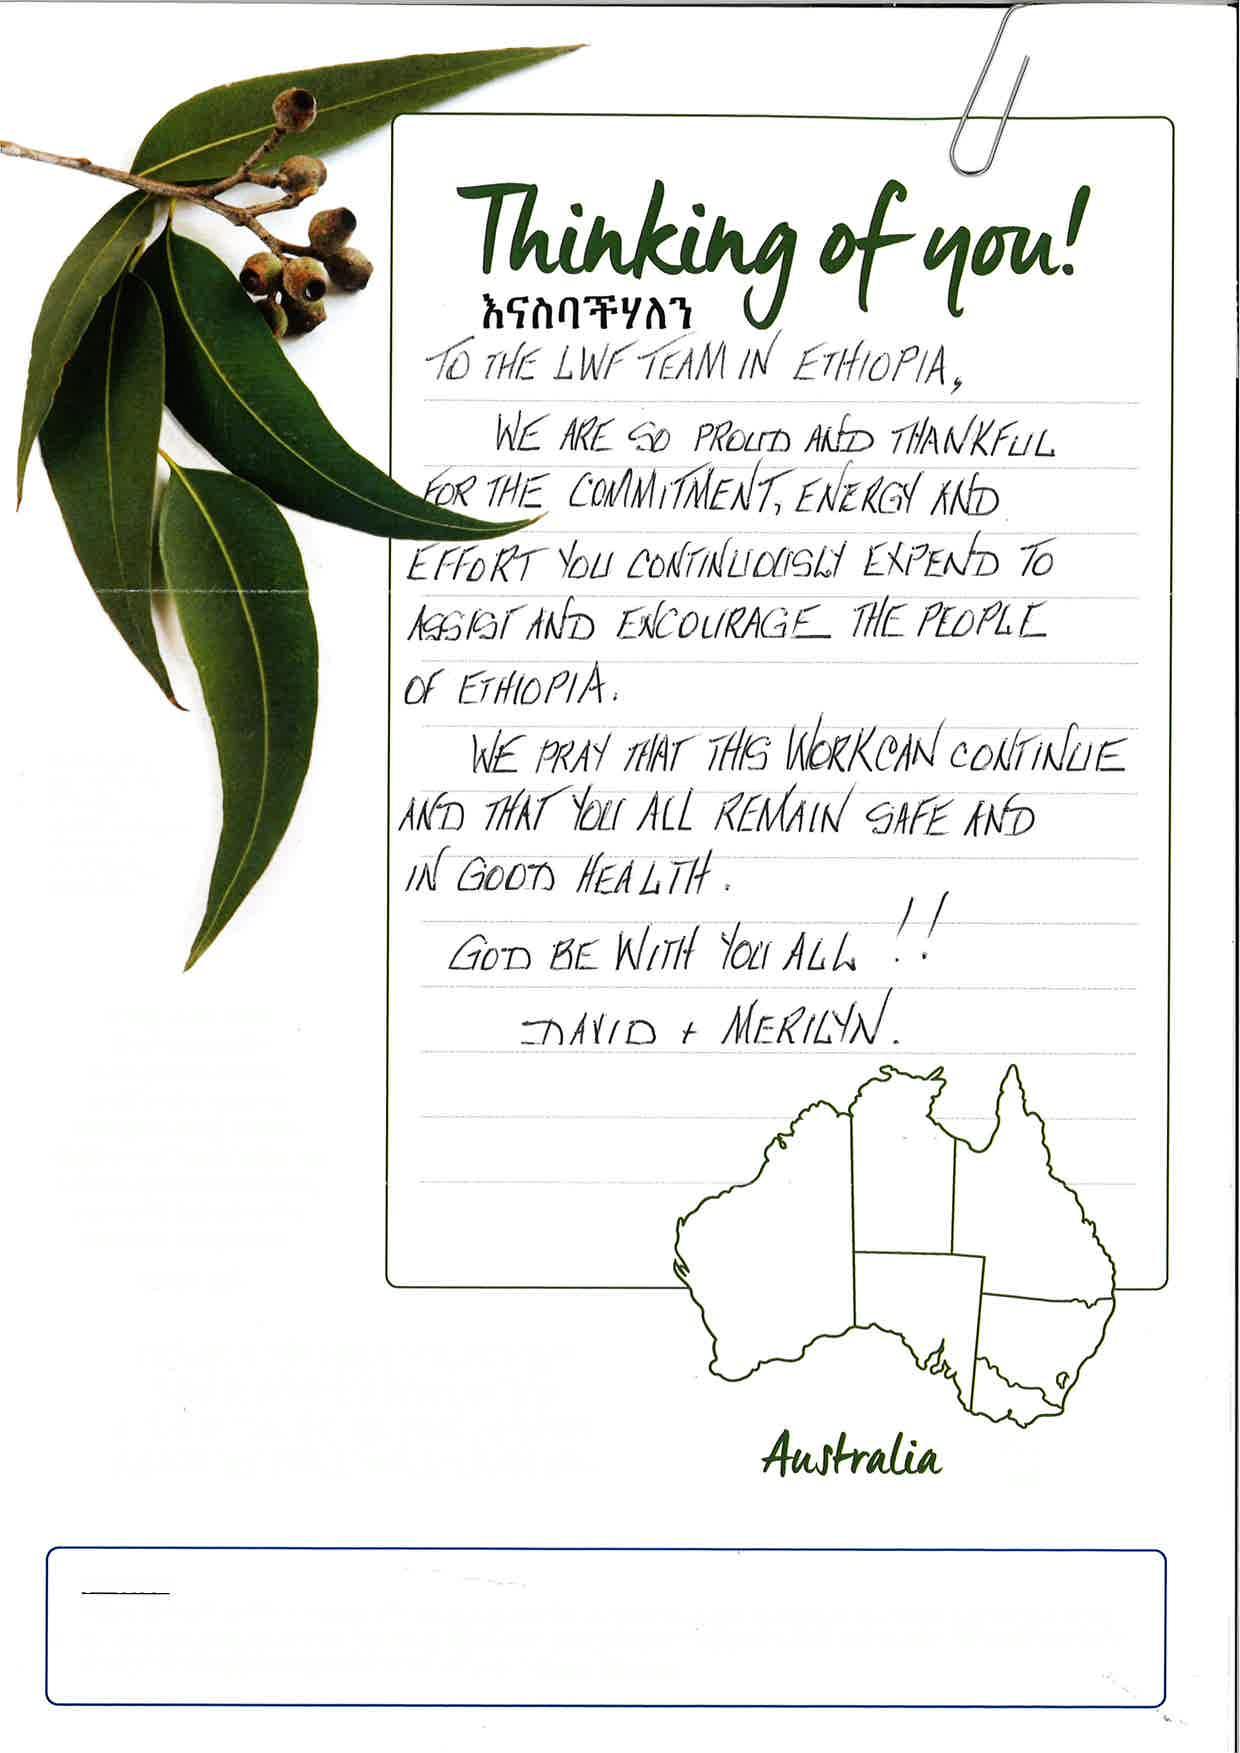 Thinking of you!
እናስባችሃለን
TO THE LWF TEAM IN ETHIOPIA,
WE ARE SO PROUD AND THANKFUL
FOR THE COMMITMENT, ENERGY AND
EFFORT YOU CONTINUOUSLY EXPEND TO
ASSIST AND ENCOURAGE THE PEOPLE
OF ETHIOPIA.
WE PRAY THAT THIS WORK CAN CONTINUE
AND THAT YOU ALL REMAIN SAFE AND
IN GOOD HEALTH.
GOD BE WITH YOU ALL !!
DAVID + MERILYN.
Australia